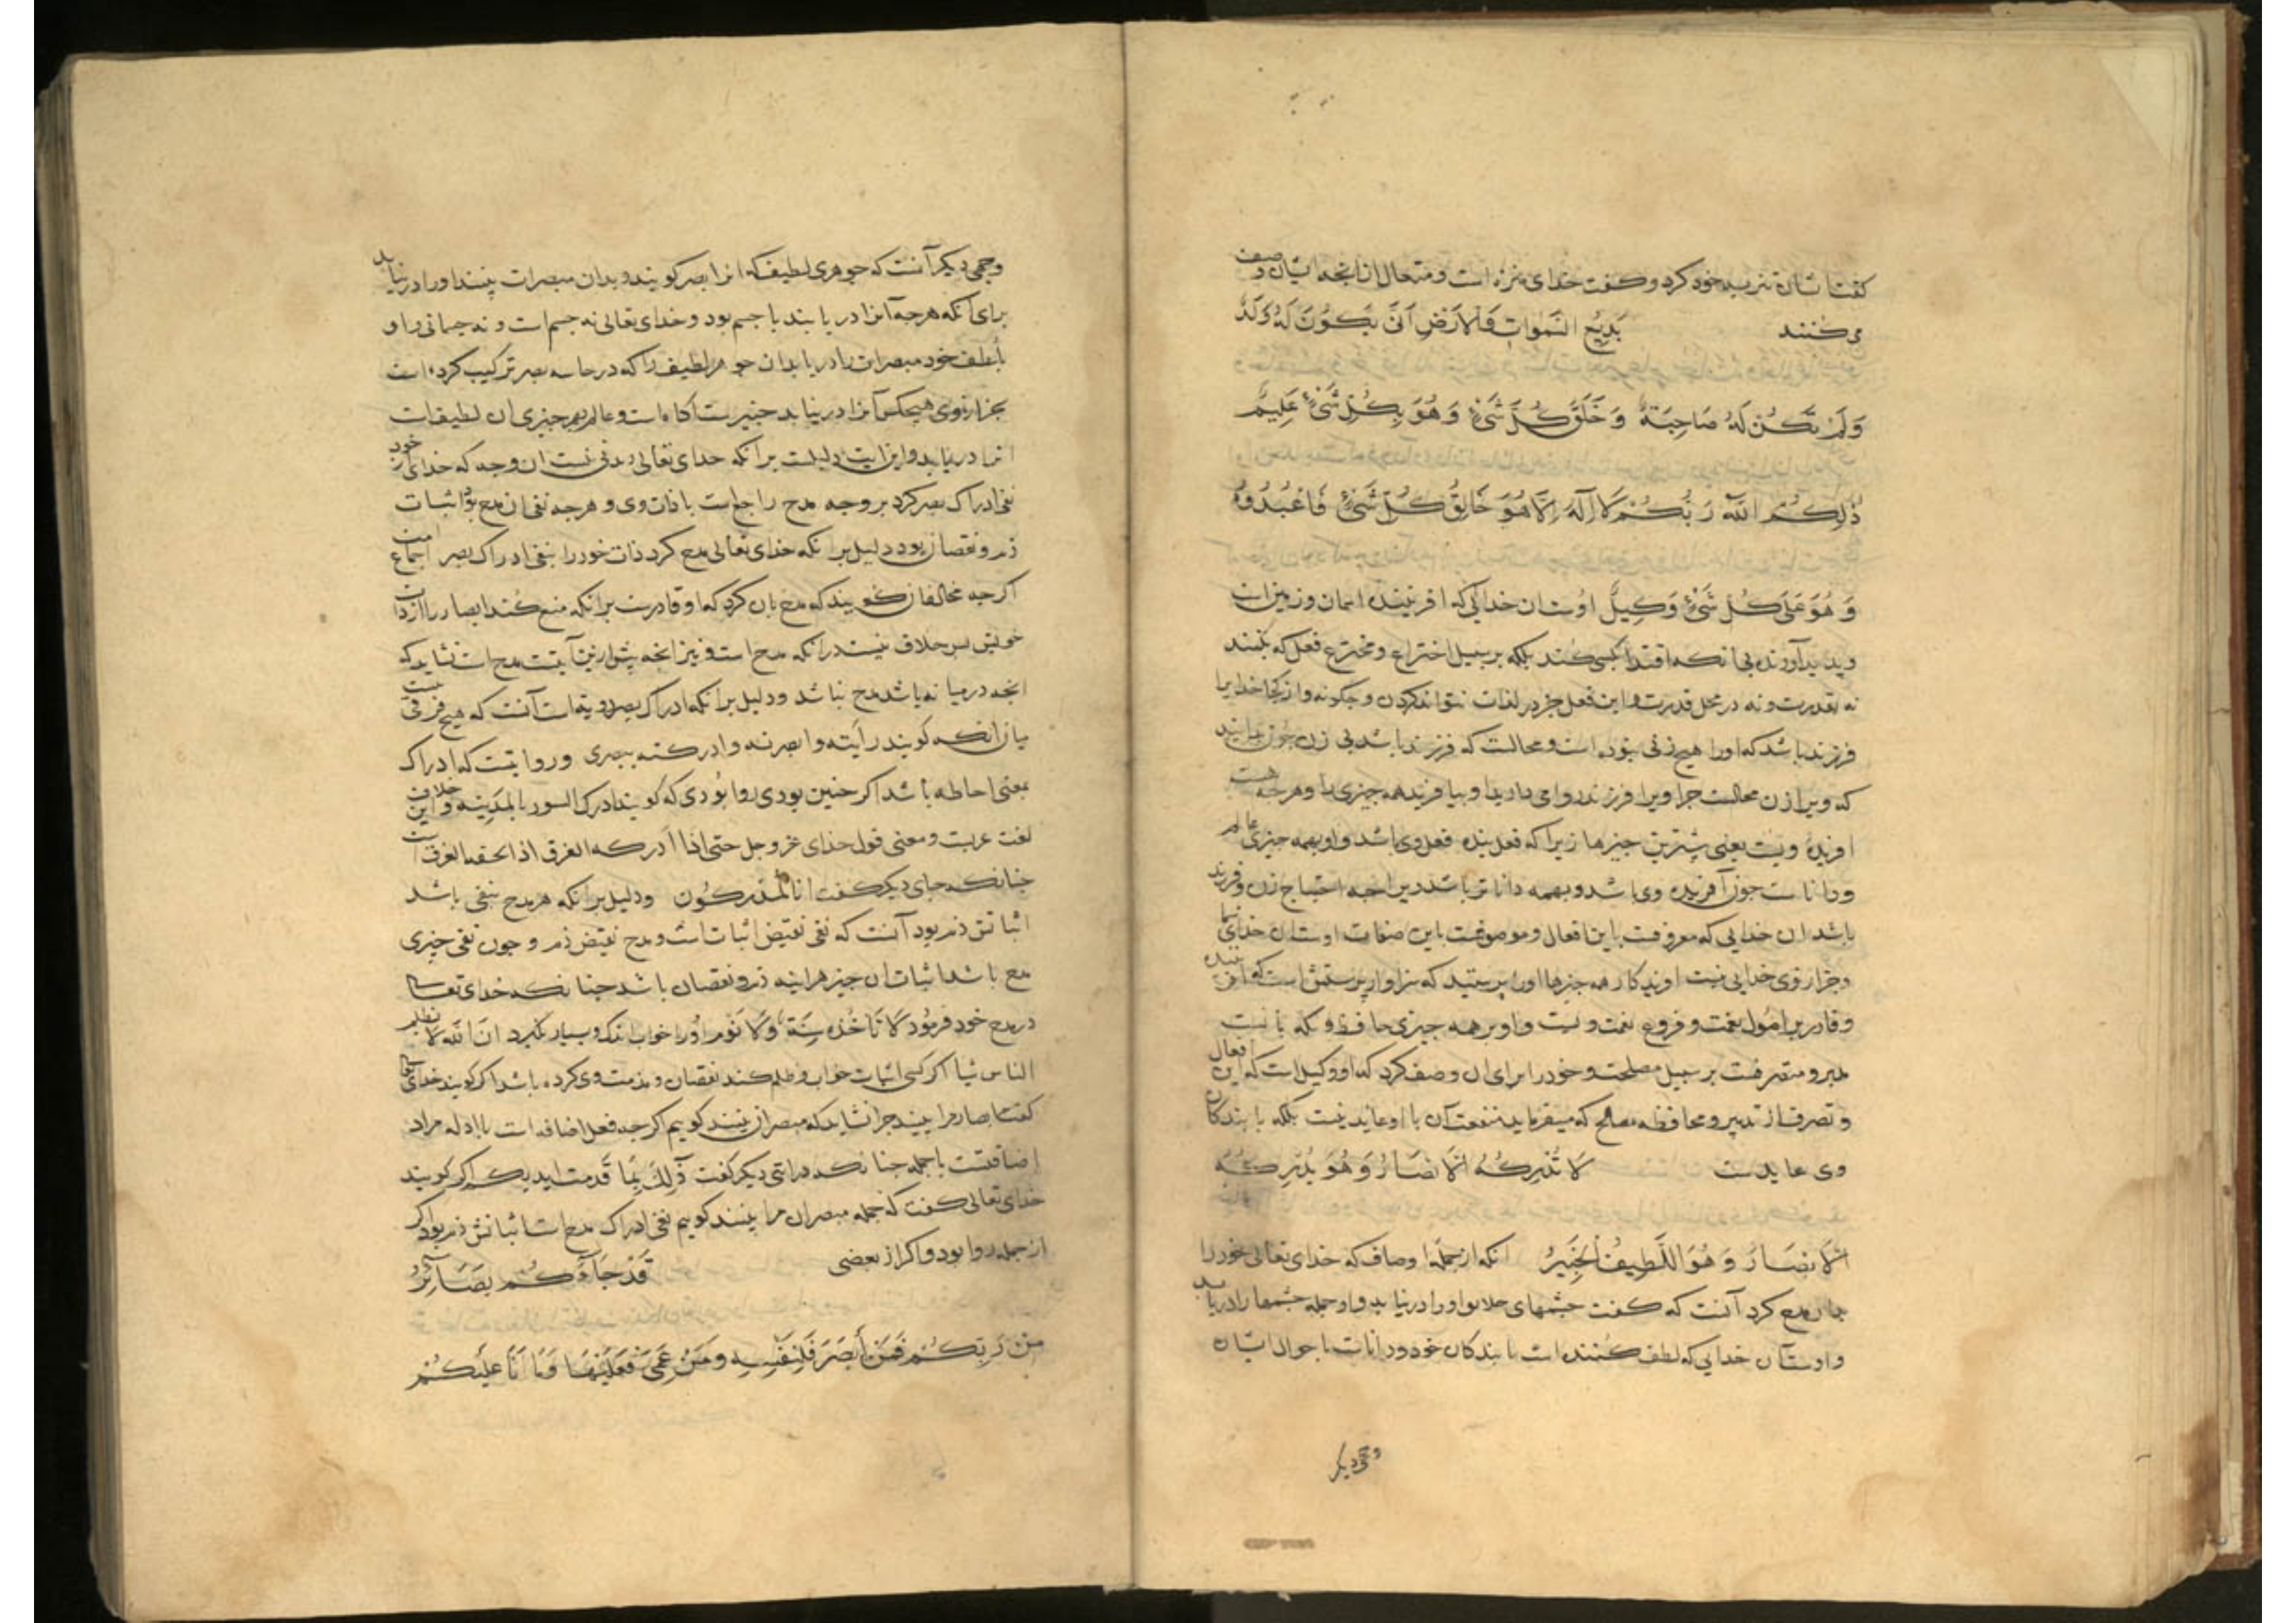 گفتا شان تنزیه خود کرد و گفت خدای منزه است و متعال از آنجه ایشان وصف
می کنند بَدِیْعُ السَّمَوَاتِ وَالْاَرْضِ اَنَّی یَکُوْنُ لَهُ وَلَدٌ
وَلَمْ تَکُنْ لَهُ صَاحِبَةٌ وَ خَلَقَ کُلَّ شَیْءٍ وَ هُوَ بِکُلِّ شَیْءٍ عَلِیمٌ
ذٰلِکُمُ اللّٰهُ رَبُّکُمْ لَا اِلٰهَ اِلَّا هُوَ خَالِقُ کُلِّ شَیْءٍ فَاعْبُدُوهُ
وَ هُوَ عَلَی کُلِّ شَیْءٍ وَکِیلٌ اوست ان خدایی که افریننده اسمان و زمین است
و پدید آورنده بی انکه اقتدا بکسی کند بلکه بر سبیل اختراع و مخترع فعل که بکنند
نه بقدرت و نه در محل قدرت و این فعل جز در لذات نتواند کردن و چگونه و از کجا خدایرا
فرزند باشد که اورا هیچ زنی نبوده است و محالست که فرزند باشد بی زن جون
که ویرا زن محالست جرا ویرا فرزند روا می دارید او بیافرید همه جیزی را و هرجه هست
افریده ویست یعنی بیشترین جیزها زیرا که فعل بنده فعل وی باشد و او بهمه جیزی عالم
و داناست جون آفریننده وی باشد و بهمه داناتر باشد دیرا جه احتیاج زن و فرزند
باشد ان خدایی که معروفست باین افعال و موصوفست باین صفات اوست ان خدای شما
و جز از وی خدایی نیست افریدکار همه جیزها اورا پرستید که سزاوار پرستش است که افریننده
و قادر بر اصول نعمت و فروع نعمت ویست و او بر همه جیزی حافظ و نکه بانست
مدبر و متصرفست بر سبیل مصلحت و خودرا برای ان وصف کرد که او وکیل است که این افعال
و تصرف از تدبیر و محافظه مصالح که میفرماید منفعت آن با او عاید نیست بلکه با بندکان
وی عایدست لَا تُدْرِکُهُ الْاَبْصَارُ وَ هُوَ یُدْرِکُ
الْاَبْصَارَ وَ هُوَ اللَّطِیفُ الْخَبِیرُ انکه از جمله اوصاف که خدای تعالی خودرا
بدان مدح کرد آنست که گفت جشمهای خلایق اورا درنیابد و او جمله جشمها را دریابد
و اوست آن خدایی که لطف کننده است با بندکان خود و داناست باحوال ایشان
وجهی دیکر
وجهی دیکر آنست که جوهری لطیف که انرا بصر کویند و بدان مبصرات بینند اورا درنیابد
برای آنکه هرجه آنرا دریابند یا جسم بود و خدای تعالی نه جسم است و نه جسمانی و او
بلطف خود مبصرات را دریابد ان جوهر لطیف را که در حاسه بصر ترکیب کرده است
بجز از وی هیچکس آنرا درنیابد خبیرست آکاه است و عالم بهر جیزی ان لطیف است
انرا دریابد و این ایت دلیلست بر انکه خدای تعالی دیدنی نیست ان وجه که خدای از خود
نفی ادراک بصر کرد بر وجه مدح راجع است با ذات وی و هرجه نفی ان مدح بود اثبات
ذم و نقصان بود دلیل بر انکه خدای تعالی مدح کرد ذات خودرا بنفی ادراک بصر اجماع امت
اکرجه مخالفان کویند که مدح بان کرد که او قادرست بر انکه منع کند ابصار را از ذات
خویش پس خلاف نیست در انکه مدح است و نیز انجه پیش ازین آیت مدح است نشاید که
انجه در میانه باشد مدح نباشد و دلیل بر انکه ادراک بصر رویت است آنست که هیچ فرقی نیست
میان انکه کویند رأیته و ابصرته و ادرکته ببصری و روا نیست که ادراک
بمعنی احاطه باشد اکر جنین بودی روا بودی که کویند ادرک السور بالمدینه و این خلاف
لغت عربست و معنی قول خدای عز و جل حتی اذا ادرکه الغرق اذا لحقه الغرق است
جنانکه جای دیکر کفت انا لمدرکون و دلیل بر انکه هر مدح بنفی باشد
اثباتش ذم بود آنست که نفی نقیض اثبات است و مدح نقیض ذم و جون نفی جیزی
مدح باشد اثبات ان جیز هراینه ذم و نقصان باشد جنانکه خدای تعالی
در مدح خود فرمود لَا تَأْخُذُهُ سِنَةٌ وَلَا نَوْمٌ اورا خواب اندک و بسیار نکیرد ان الله لا یظلم
الناس شیا اکر کسی اثبات خواب و ظلم کند نقصان و مذمت وی کرده باشد اکر کویند خدای تعالی
کفت ابصار مرا نبیند جرا نشاید که مبصران بینند کویم اکرجه فعل اضافه است با ادله مراد
اضافتست با جمله جنانکه در ایتی دیکر کفت ذٰلِکَ بِمَا قَدَّمَت ایدیکم اکر کویند
خدای تعالی کفت که جمله مبصران مرا نبینند کویم نفی ادراک مدح است اثباتش ذم بود اکر
از جمله روا بود و اکر از بعضی قَدْ جَآءَکُمْ بَصَآئِرُ
مِنْ رَبِّکُمْ فَمَنْ اَبْصَرَ فَلِنَفْسِهِ وَمَنْ عَمِیَ فَعَلَیْهَا وَمَا اَنَا عَلَیْکُمْ